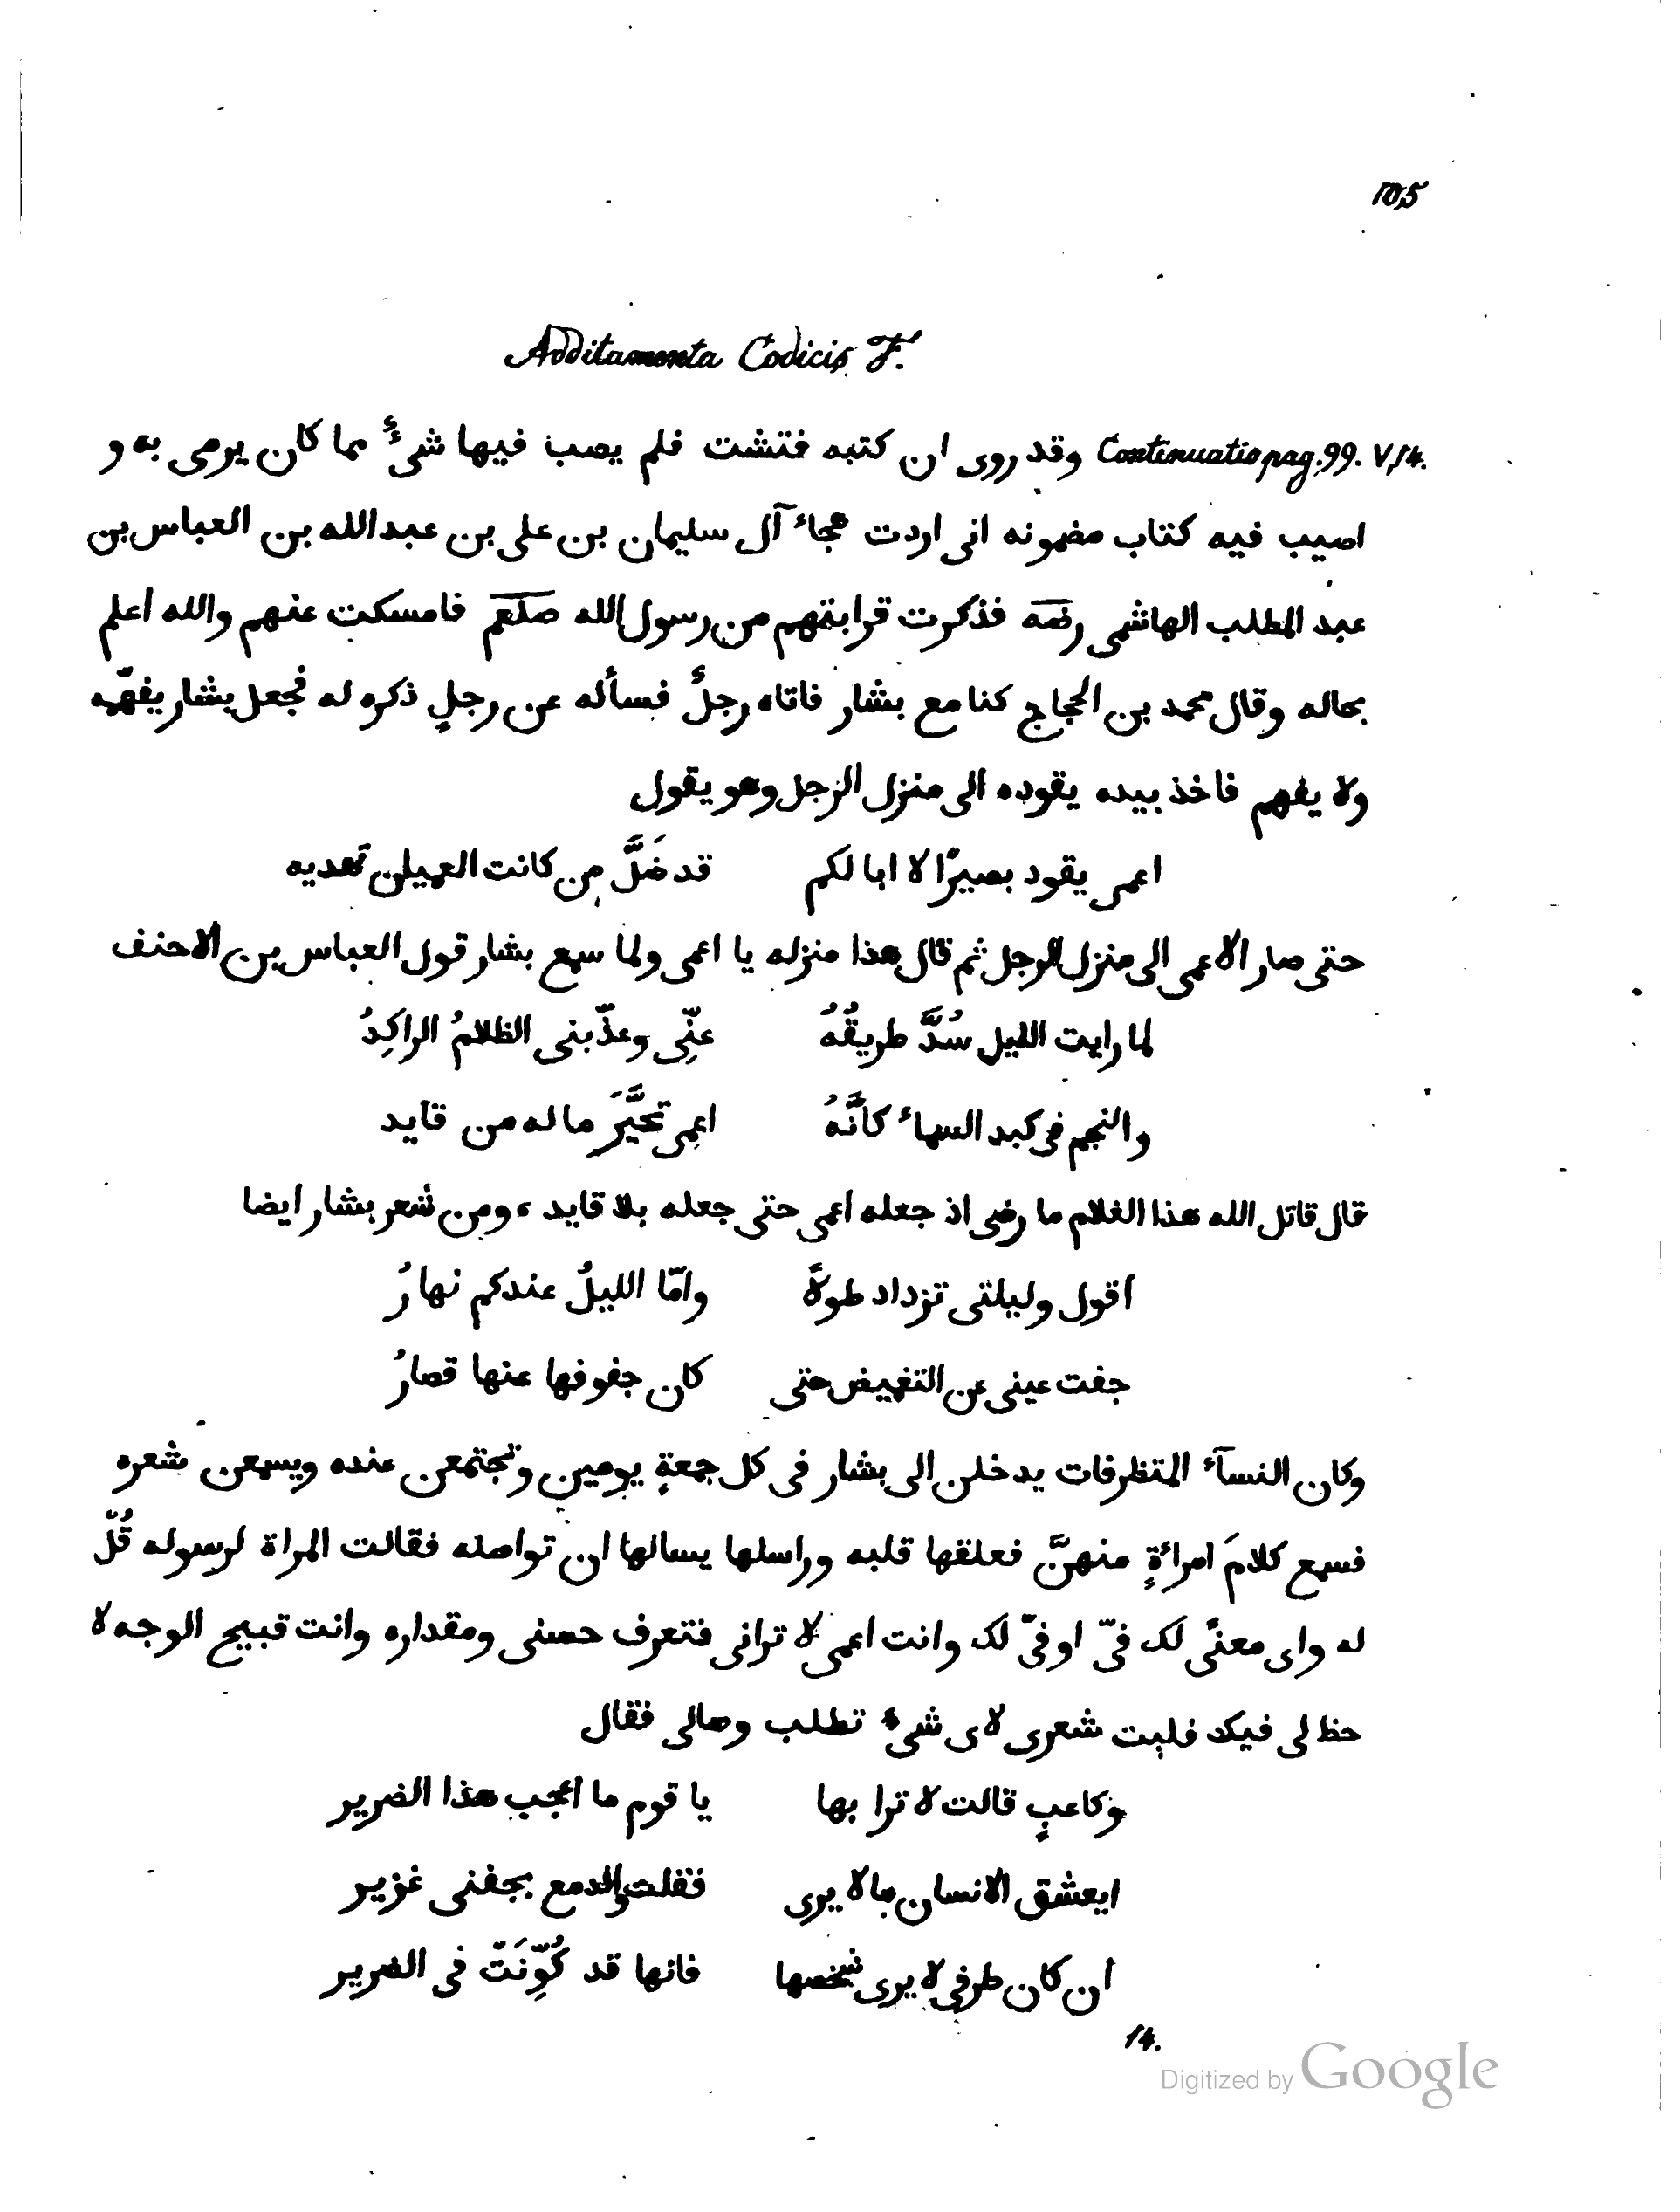 105
Additamenta Codicis F.
Continuatio pag. 99. V, 14. وقد روى ان كتبه فتشت فلم يصب فيها شىءٌ مما كان يرمى به و
اصيب فيه كتاب مضمونه انى اردت هجاء آل سليمان بن على بن عبد الله بن العباس بن
عبد المطلب الهاشمى رضه فذكرت قرابتهم من رسول الله صلعم فامسكت عنهم والله اعلم
بحاله وقال محمد بن الحجاج كنا مع بشار فاتاه رجلٌ فسأله عن رجلٍ ذكره له فجعل بشار يفهّمه
ولا يفهم فاخذ بيده يقوده الى منزل الرجل وهو يقول
اعمى يقود بصيرًا لا ابا لكم قد ضَلَّ من كانت العميان تهديه
حتى صار الاعمى الى منزل الرجل ثم قال هذا منزله يا اعمى ولما سمع بشار قول العباس بن الاحنف
لما رايت الليل سُدَّ طريقُهُ عنِّى وعذّبنى الظلامُ الراكِدُ
والنجم فى كبد السماء كأنَّهُ اعمى تحَيَّرَ ما له من قايد
قال قاتل الله هذا الغلام ما رضى اذ جعله اعمى حتى جعله بلا قايد ، ومن شعر بشار ايضا
أقول وليلتى تزداد طولاً وامّا الليلُ عندكم نهارُ
جفت عينى عن التغميض حتى كان جفوفها عنها قصارُ
وكان النسآء المتظرفات يدخلن الى بشار فى كل جمعةٍ يومين وتجتمعن عنده ويسمعن شعره
فسمع كلامَ امرائةٍ منهنَّ فعلقها قلبه وراسلها يسالها ان تواصله فقالت المراة لرسوله قُلّ
له واى معنًى لك فىّ او فىّ لك وانت اعمى لا ترانى فتعرف حسنى ومقداره وانت قبيح الوجه لا
حظ لى فيك فليت شعرى لاى شىء تطلب وصالى فقال
وكاعبٍ قالت لا ترا بها يا قوم ما اعجب هذا الضرير
ايعشق الانسان ما لا يرى فقلت والدمع بجفنى غزير
أن كان طرفى لا يرى شخصها فانها قد كُوِّنَتّ فى الضرير
14.
Digitized by Google